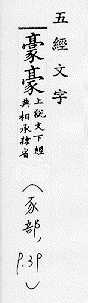 五經文字
豪豪
上說文下經
典相承隸省
（豕部, P.39）